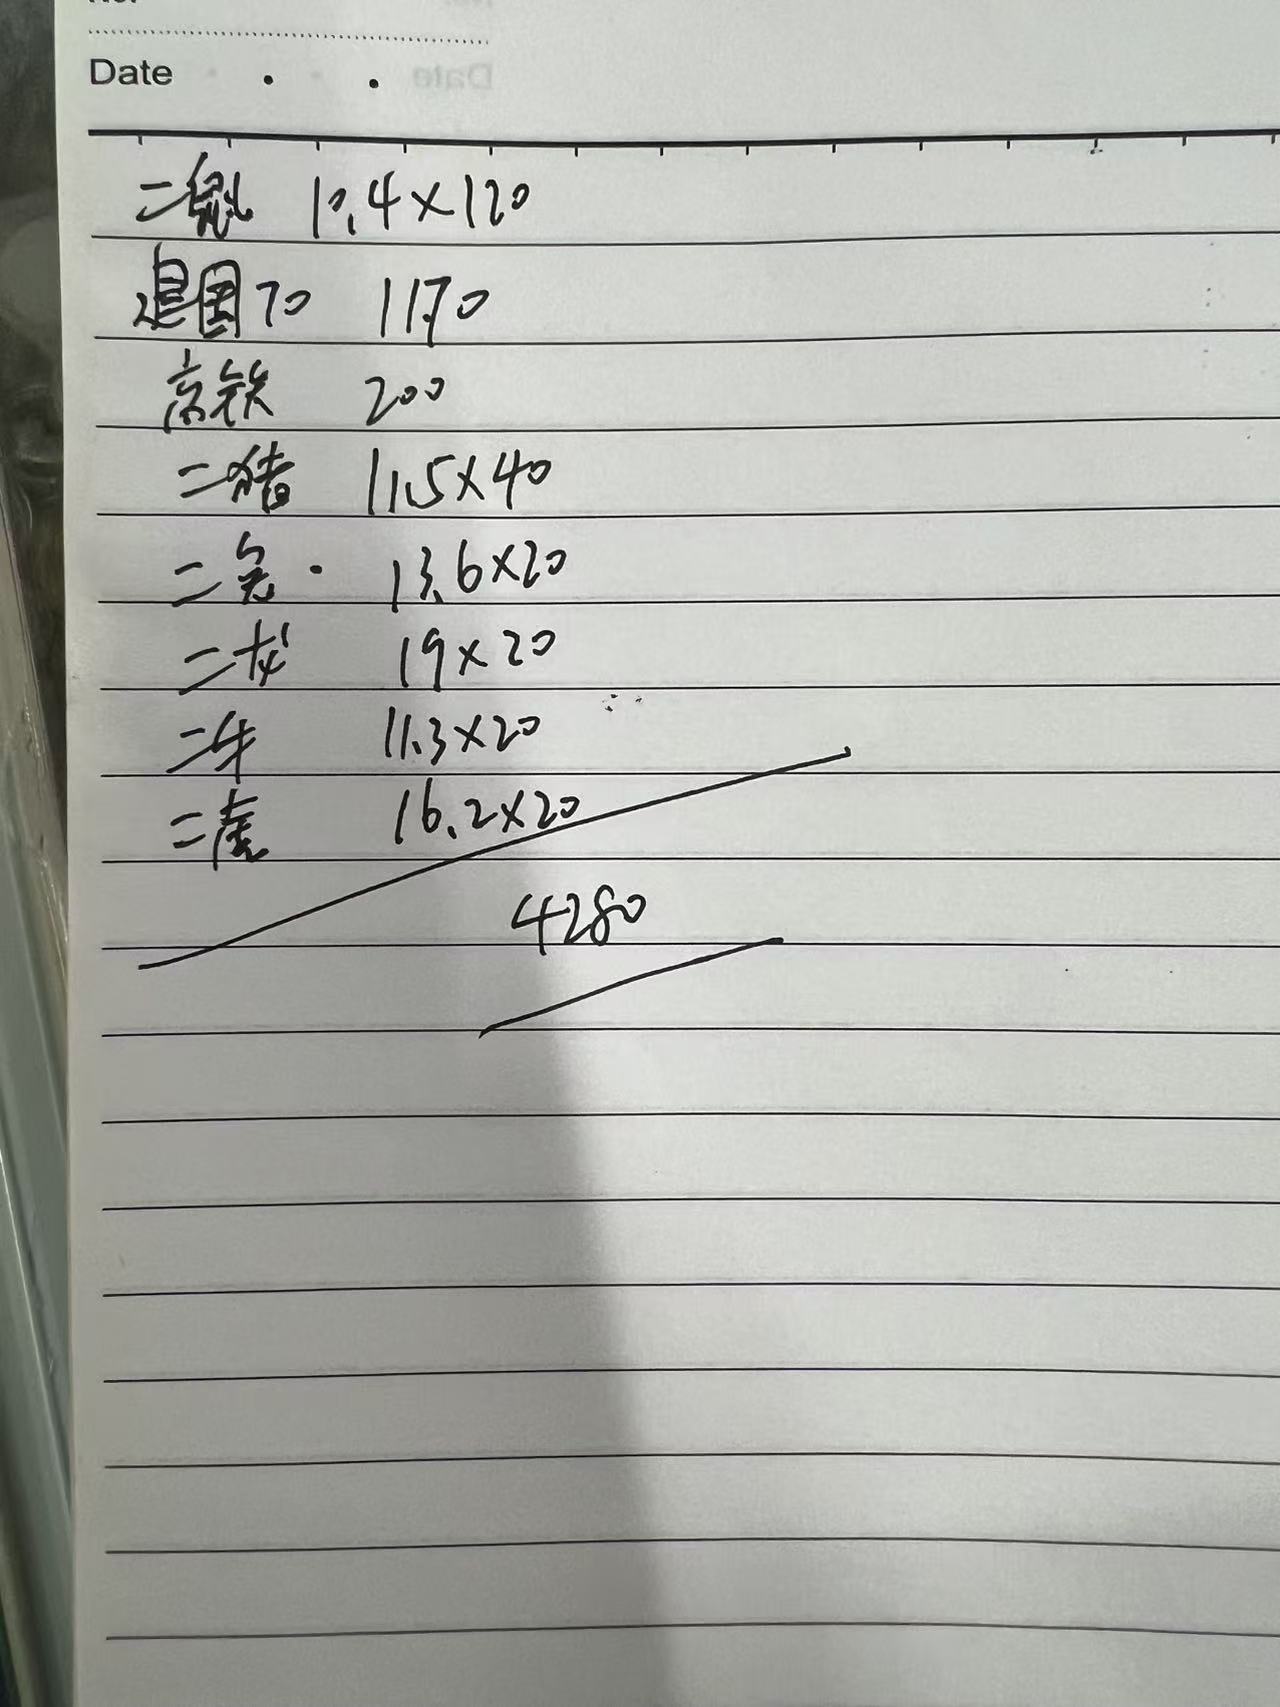 Date
二鼠 10.4×120
建国70 1170
高铁 200
二猪 11.5×40
二兔· 13.6×20
二龙 19×20
二牛 11.3×20
二虎 16.2×20
4280